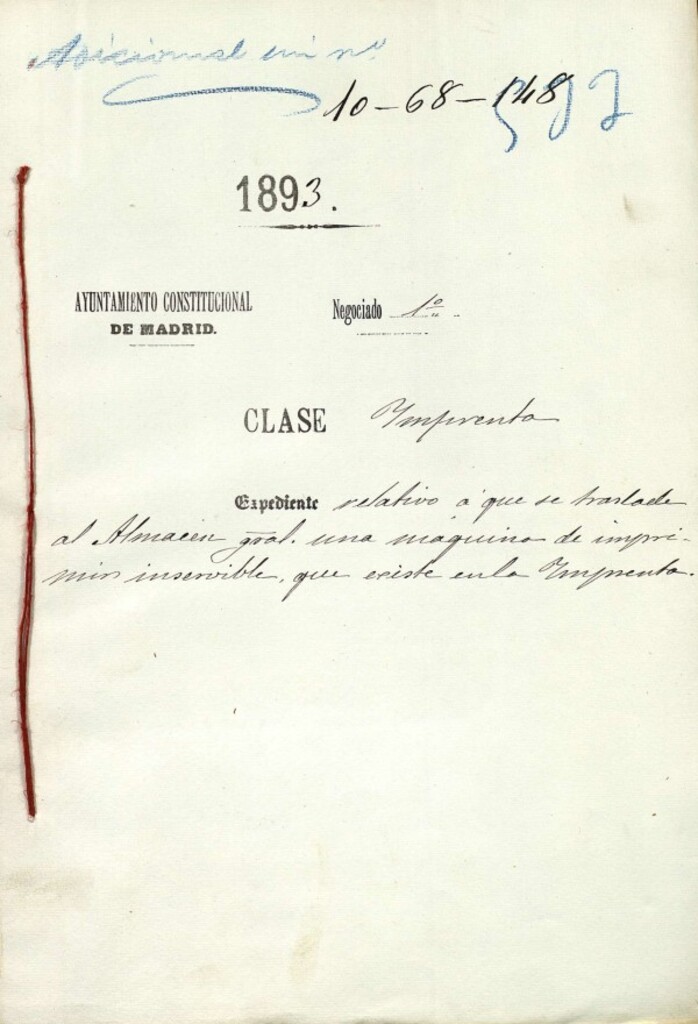 Adicional sin nº
10-68-148
1893.
AYUNTAMIENTO CONSTITUCIONAL
DE MADRID.
Negociado 1º
CLASE Imprenta
Expediente relativo á que se traslade
al Almacén gral. una máquina de impri-
mir inservible, que existe en la Imprenta.